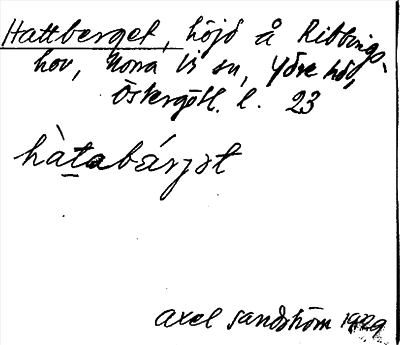 Hattberget, höjd å Ribbings-
hov, Norra Vi sn, Ydre hd,
Östergötl. l. 23
hàtabárjət
Axel Sandström 1929